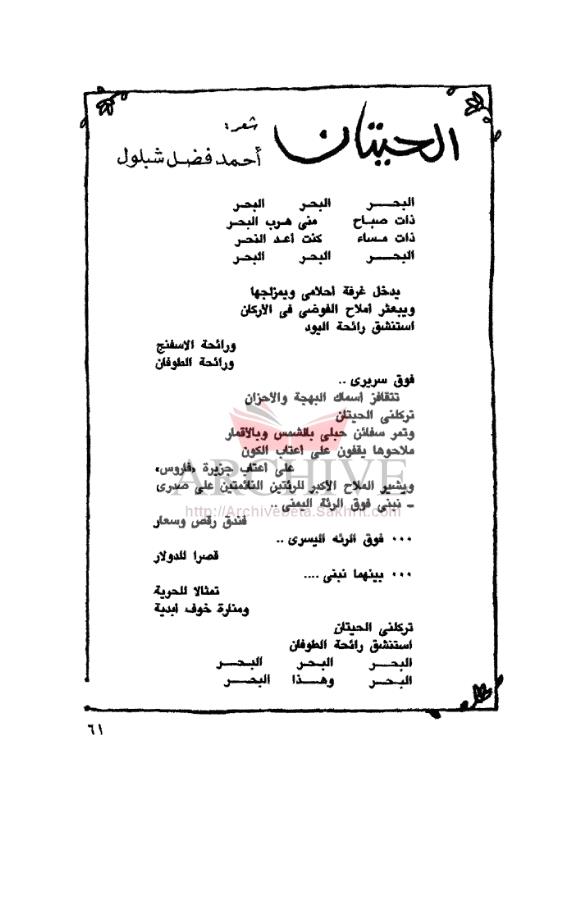 الحيتان
شعر:
أحمد فضل شبلول
البحـــر البحر البحر
ذات صباح منى هرب البحر
ذات مساء كنت أعد النحر
البحـــر البحر البحر
يدخل غرفة أحلامى ويمزلجها
ويبعثر أملاح الفوضى فى الأركان
استنشق رائحة اليود
ورائحة الإسفنج
ورائحة الطوفان
فوق سريرى ..
تتقافز أسماك البهجة والأحزان
تركلنى الحيتان
وتمر سفائن حبلى بالشمس وبالأقمار
ملاحوها يقفون على أعتاب الكون
على أعتاب جزيرة «فاروس»
ويشير الملاح الأكبر للرئتين النائمتين على صدرى
ـ نبنى فوق الرئة اليمنى ..
فندق رقص وسعار
... فوق الرئه اليسرى ..
قصرا للدولار
... بينهما نبنى ....
تمثالا للحرية
ومنارة خوف أبدية
تركلنى الحيتان
استنشق رائحة الطوفان
البحـــر البحـــر البحـــر
البحـــر وهـــذا البحـــر
ARCHIVE
http://Archivebeta.Sakhrit.com
٦١